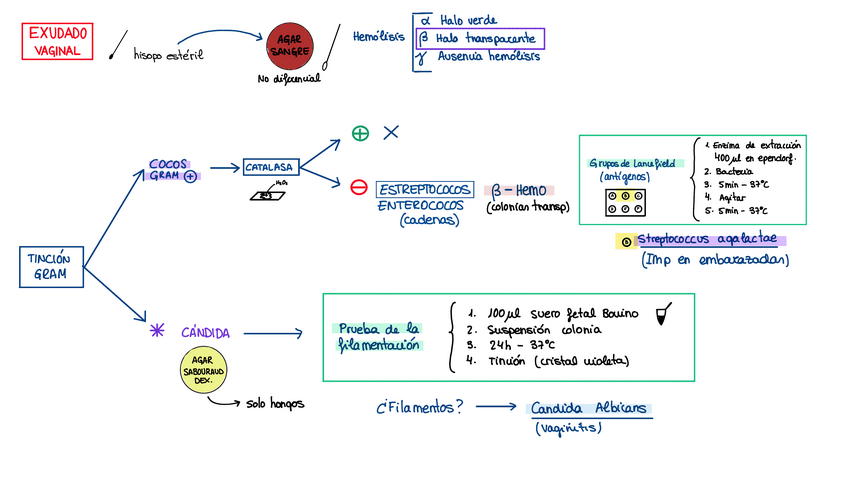 EXUDADO
VAGINAL
hisopo estéril
AGAR
SANGRE
No diferencial
Hemólisis
α Halo verde
β Halo transparente
γ Ausencia hemólisis
TINCIÓN
GRAM
COCOS
GRAM +
CATALASA
H₂O₂
+ X
-
ESTREPTOCOCOS
ENTEROCOCOS
(cadenas)
β - Hemo
(colonias transp)
Grupos de Lancefield
(antígenos)
A B C
D F G
1. Enzima de extracción
400 µl en ependorf.
2. Bacteria
3. 5min - 37ºC
4. Agitar
5. 5min - 37ºC
B Streptococcus agalactae
(Imp en embarazadas)
* CÁNDIDA
AGAR
SABOURAUD
DEX.
solo hongos
Prueba de la
filamentación
1. 100 µl suero fetal Bovino
2. Suspensión colonia
3. 24h - 37ºC
4. Tinción (cristal violeta)
¿Filamentos?
Candida Albicans
(vaginitis)